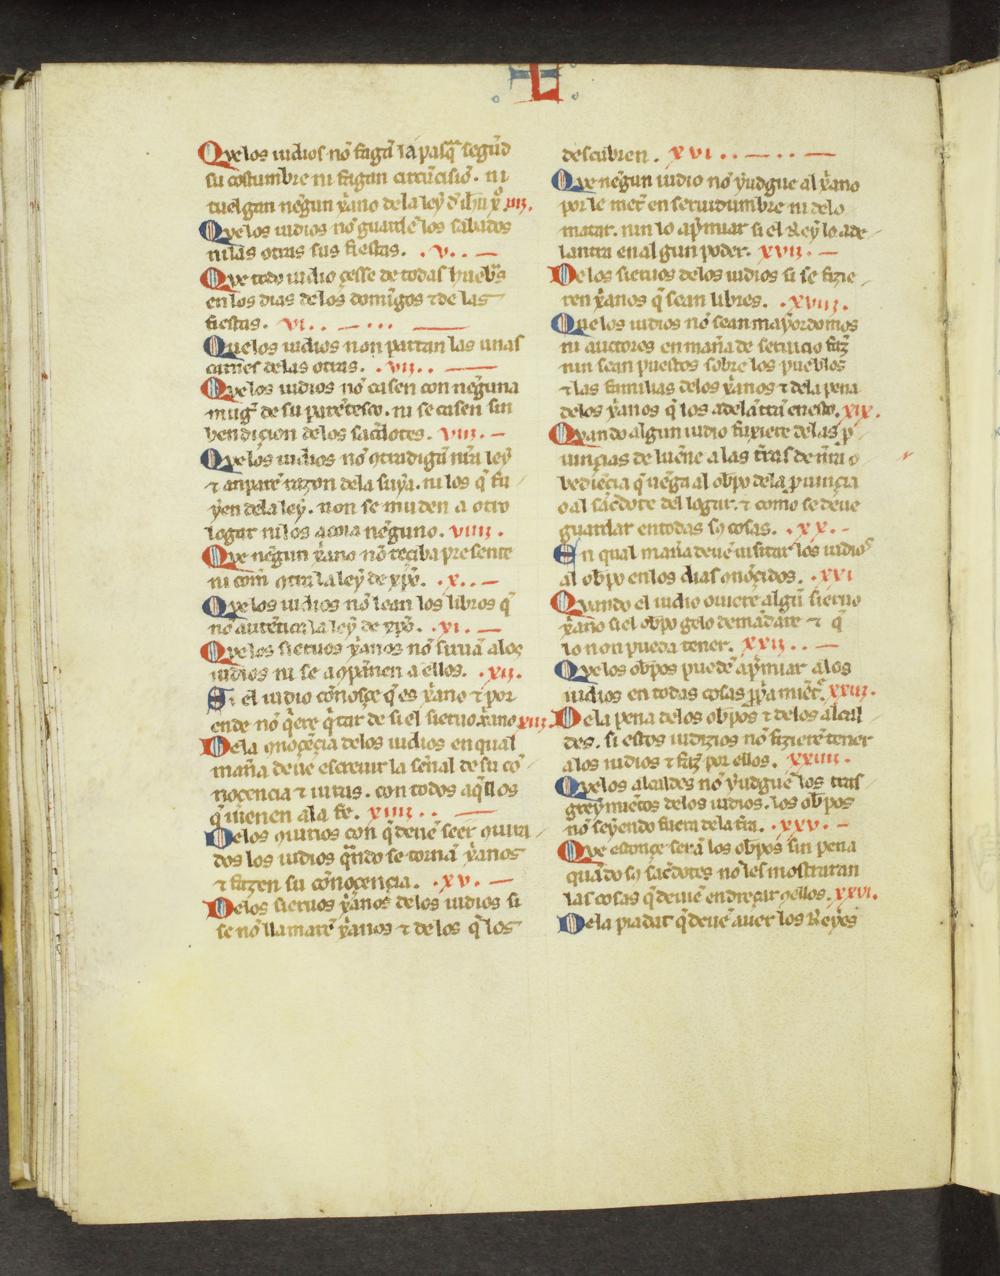 L
Que los iudios nõ fagã la pasq̃ segũd
su costumbre ni fagan circũcisiõ. ni
tuelgan negun xp̃ano de la ley d̃ ih̃u xp̃o. iiii.
Que los iudios nõ guardẽ los sabados
ni las otras sus fiestas. . v. . —
Que todo iudio çesse de todas huebr̃s
en los dias de los domĩgos ⁊ de las
fiestas. vi. . — . . . —
Que los iudios non partan las unas
carnes de las otras. . vii. . —
Que los iudios nõ casen con neguna
mug̃ de su parẽtesco. ni se casen sin
bendiçion de los sac̃dotes. viii. —
Que los iudios nõ ɔtradigã nr̃a ley
⁊ anparẽ razon de la suya. ni los q̃ fu
yen de la ley. non se muden a otro
logar ni los acoia neguno. viiii.
Que negun xp̃ano nõ reçiba presente
ni com̃ ɔtra la ley de xp̃o. . x. . —
Que los iudios nõ lean los libros q̃
nõ autẽtica la ley de xp̃o. . xi. . —
Que los sieruos xp̃anos nõ siruã a los
iudios ni se aɔpañen a ellos. . xii.
Si el iudio coñosçe q̃ es xp̃ano ⁊ por
ende nõ q̃ere q̃tar de si el sieruo xp̃ano xiii.
De la ɔnoçẽçia de los iudios en qual
mañ̃a deue escreuir la señal de su co
noçencia ⁊ iuras. con todos aq̃llos
q̃ uienen a la fe. xiiii. . —
De los ɔiurios con q̃ deuẽ seer ɔiura
dos los iudios q̃ndo se tornã xp̃anos
⁊ fazen su coñoçençia. . xv. . —
De los sieruos xp̃anos de los iudios si
se nõ llamarẽ xp̃anos ⁊ de los q̃ los
descubren. . xvi . . — . . —
Que negun iudio nõ yudgue al xp̃ano
por le met̃ en seruidumbre ni de lo
matar. nin lo ap̃miar si el Rey lo ade
lantra en algun poder. xvii. —
De los sieruos de los iudios si se fizie
ren xp̃anos q̃ sean libres. . xviii.
Que los iudios nõ sean mayordomos
ni auctores en maña de seruicio faz̃
nin sean puestos sobre los pueblos
⁊ las familias de los xp̃anos ⁊ de la pena
de los xp̃anos q̃ los adelãtrã en esto. xix.
Quando algun iudio fuxiere de las p̃
uinçias de luẽne a las tr̃as de nr̃a o
bediẽcia q̃ uẽga al obp̃o de la p̃uinçia
o al sac̃dote del logar. ⁊ como se deue
guardar en todas sꝯ cosas. . xx. -
En qual maña deuẽ uisitar los iudios
al obp̃o en los dias ɔnoçidos. . xxi
Quando el iudio ouiere algũ sieruo
xp̃ano si el obp̃o gelo demãdare ⁊ q̃
lo non pueda tener. xxii. . —
Que los obp̃os puedẽ ap̃miar a los
iudios en todas cosas pp̃iamiẽt̃. xxiii.
De la pena de los obp̃os ⁊ de los alcal
des. si estos iudizios nõ fizierẽ tener
a los iudios ⁊ faz̃ por ellos. xxiiii.
Que los alcaldes nõ yudguẽ los tras
greymiẽtos de los iudios. los obp̃os
nõ seyendo fuera de la tr̃a. . xxv. -
Que estonçe serã los obp̃os sin pena
quãdo sꝯ sac̃dotes nõ les mostraran
las cosas q̃ deuen endreçar ɔ ellos. xxvi.
De la piadat q̃ deuẽ auer los Reyes